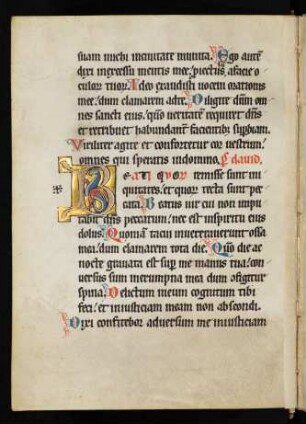 suam michi in ciuitate munita. Ego aute
dixi in excessu mentis mee. piectus a facie o
culor tuor. Ideo exaudisti uocem orationis
mee. dum clamarem ad te. Diligite dnm om
nes sancti eius. qm ueritatem requiret dns
et retribuet habundanter facientib superbiam.
Viriliter agite et confortetur cor uestrum.
omnes qui speratis in domino. dauid.
Beati quor remisse sunt ini
quitates. et quor tecta sunt pec
cata. Beatus uir cui non impu
tabit dns peccatum. nec est in spiritu eius
dolus. Quoniam tacui inueterauerunt ossa
mea. dum clamarem tota die. Qm die ac
nocte grauata est sup me manus tua. con
uersus sum in erumpna mea dum configitur
spina. Delictum meum cognitum tibi
feci. et iniusticiam meam non abscondi.
Dixi confitebor aduersum me iniusticiam